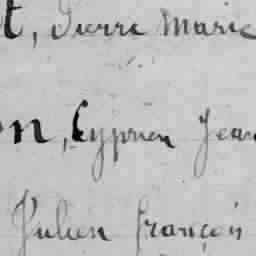 t, Pierre Marie
on, Cyprien Jean
Julien françois